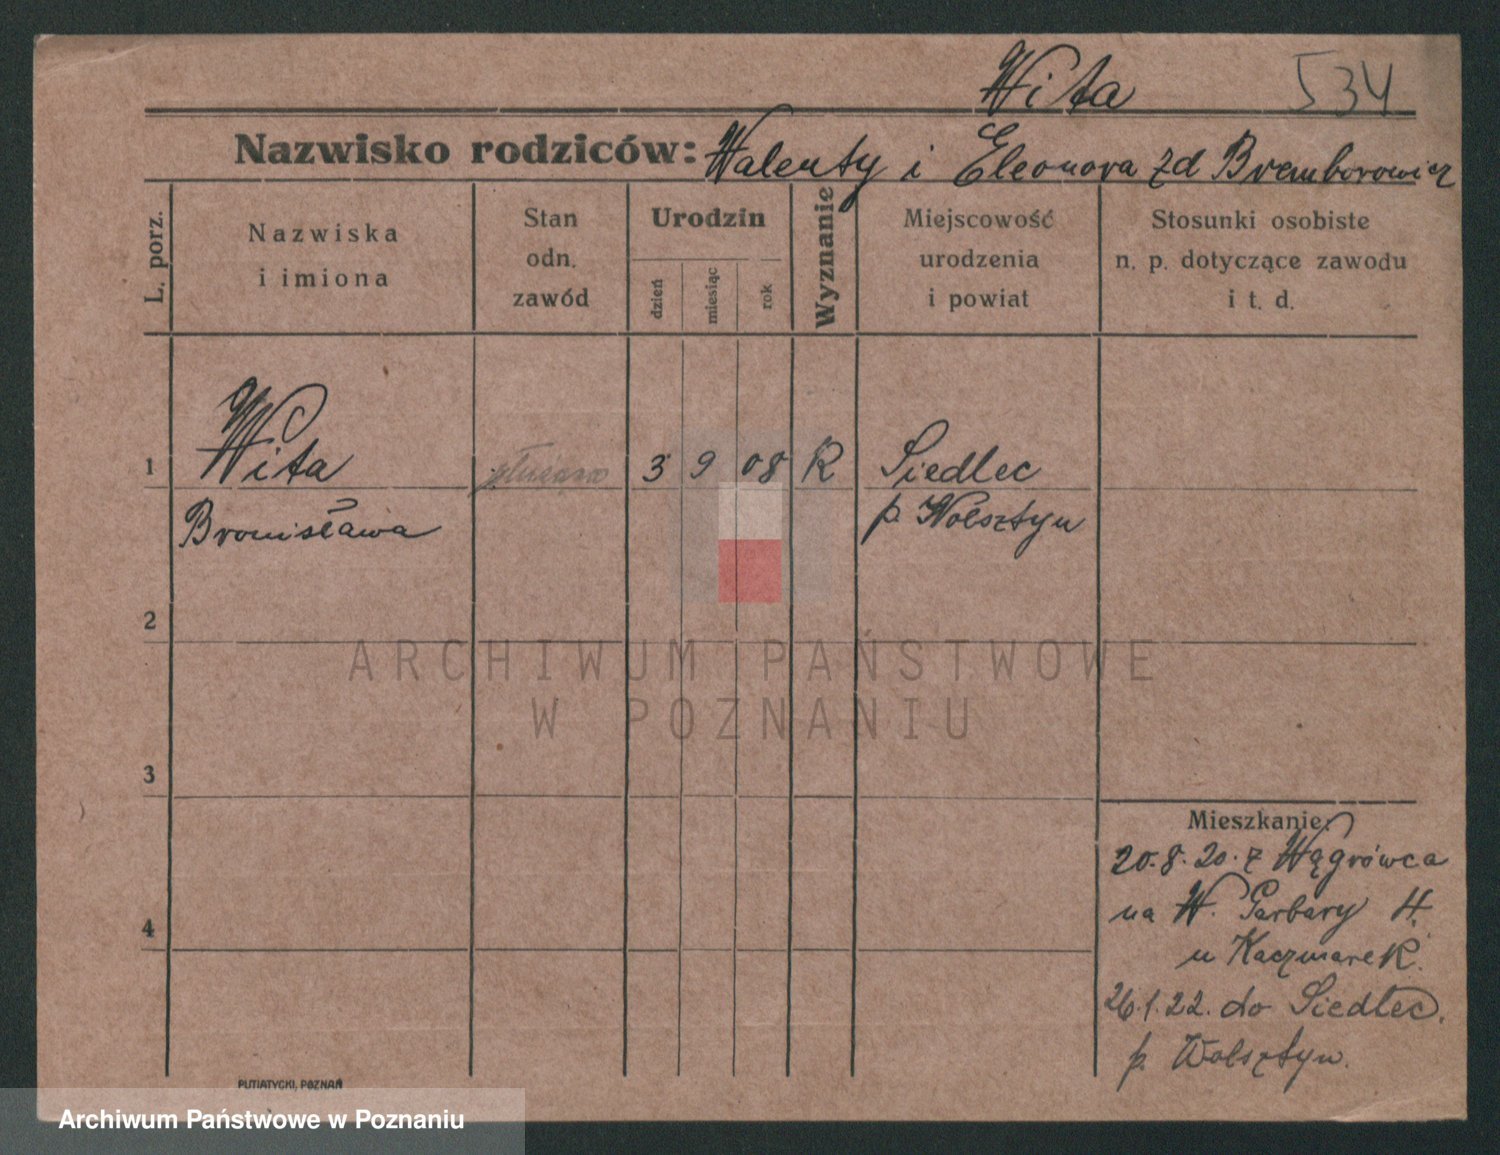 Wita 534
Nazwisko rodziców: Walenty i Eleonora zd Bremborowicz
L. porz.
Nazwiska
i imiona
Stan
odn.
zawód
Urodzin
dzień
miesiąc
rok
Wyznanie
Miejscowość
urodzenia
i powiat
Stosunki osobiste
n. p. dotyczące zawodu
i t. d.
1 Wita 3 9 08 R Siedlec
Bronisława p. Wolsztyn
2
ARCHIWUM PAŃSTWOWE
W POZNANIU
3
Mieszkanie:
20.8.20. z Wągrówca
na W. Garbary 4.
u Kaczmarek.
26.1.22. do Siedlec.
p. Wolsztyn.
4
PUTIATYCKI, POZNAŃ
Archiwum Państwowe w Poznaniu